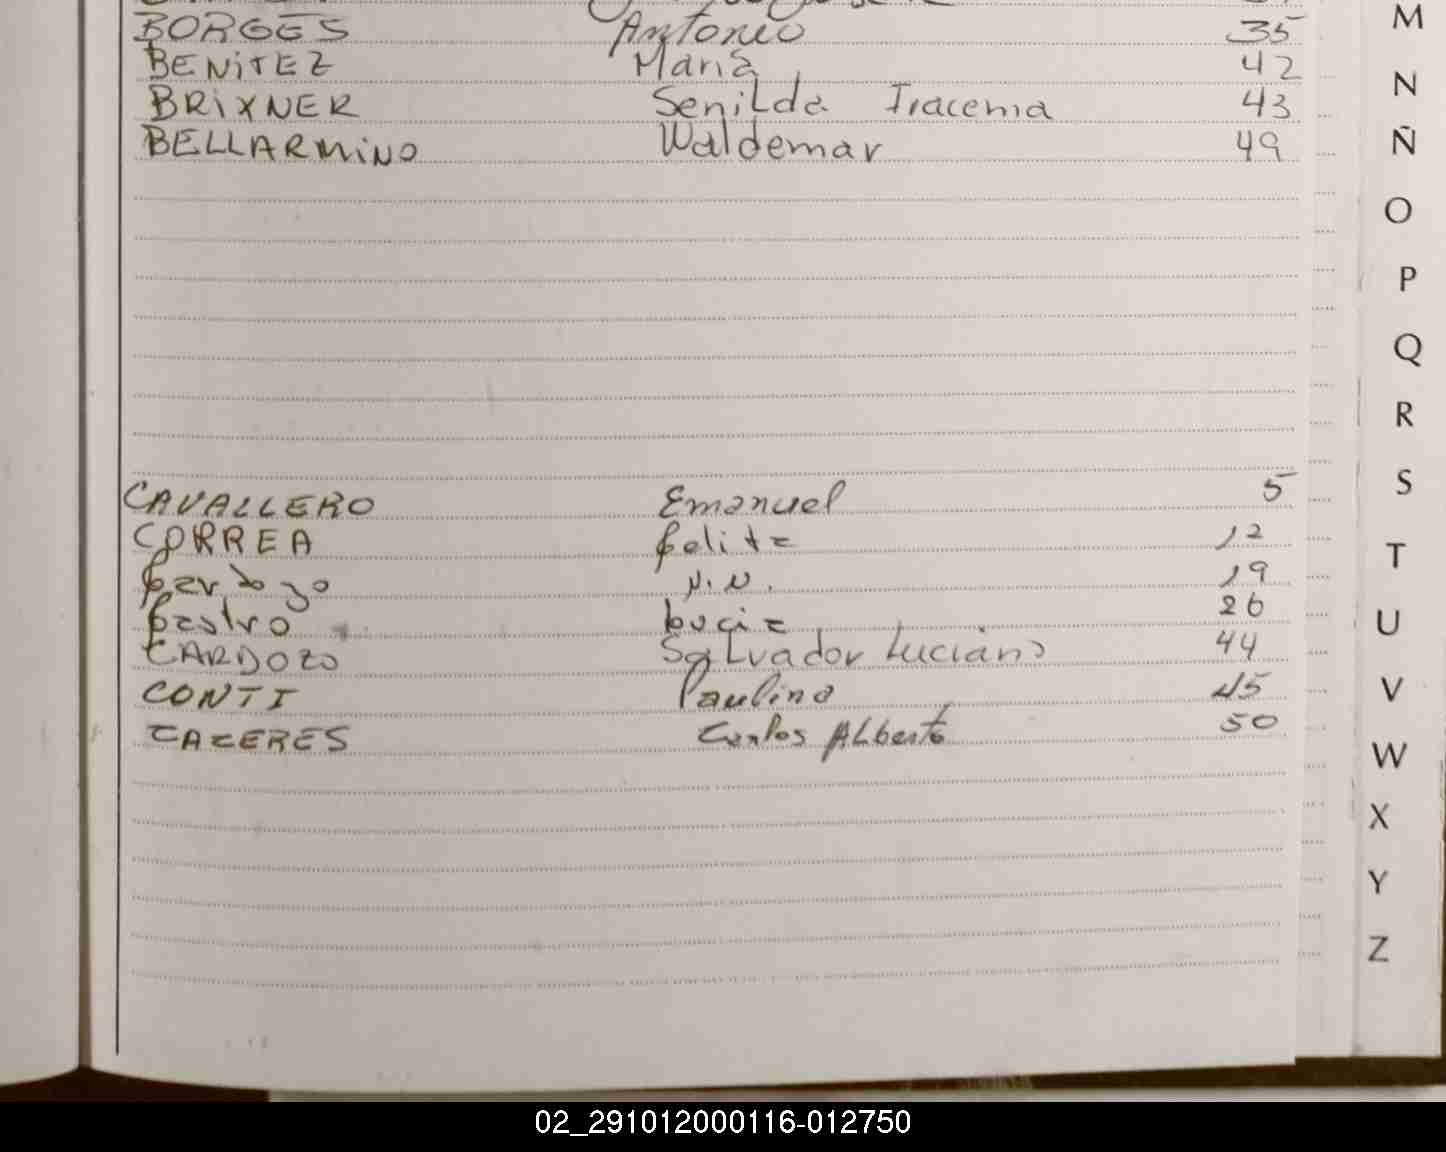 BORGES Antonio 35
BENITEZ Maria 42
BRIXNER Senilda Iracema 43
BELLARMINO Waldemar 49
CAVALLERO Emanuel 5
CORREA Felisa 12
Cardozo N.N. 19
Castro Lucia 26
CARDOZO Salvador Luciano 44
CONTI Paulina 45
CACERES Carlos ALberto 50
M
N
Ñ
O
P
Q
R
S
T
U
V
W
X
Y
Z
02_291012000116-012750